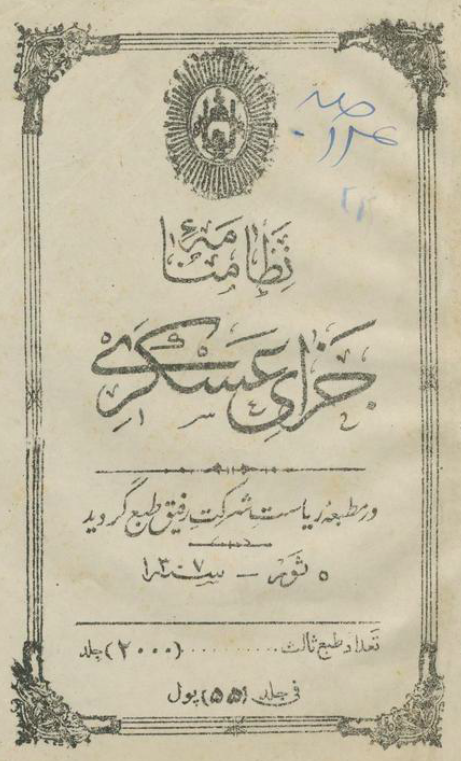 نظامنامۀ
جزای عسکری
در مطبعه ریاست شرکت رفیق طبع گردید
۵ ثور - سنه ۱۳۰۷
تعداد طبع ثالث ......... (۲۰۰۰) جلد
فی جلد (۵۵) پول